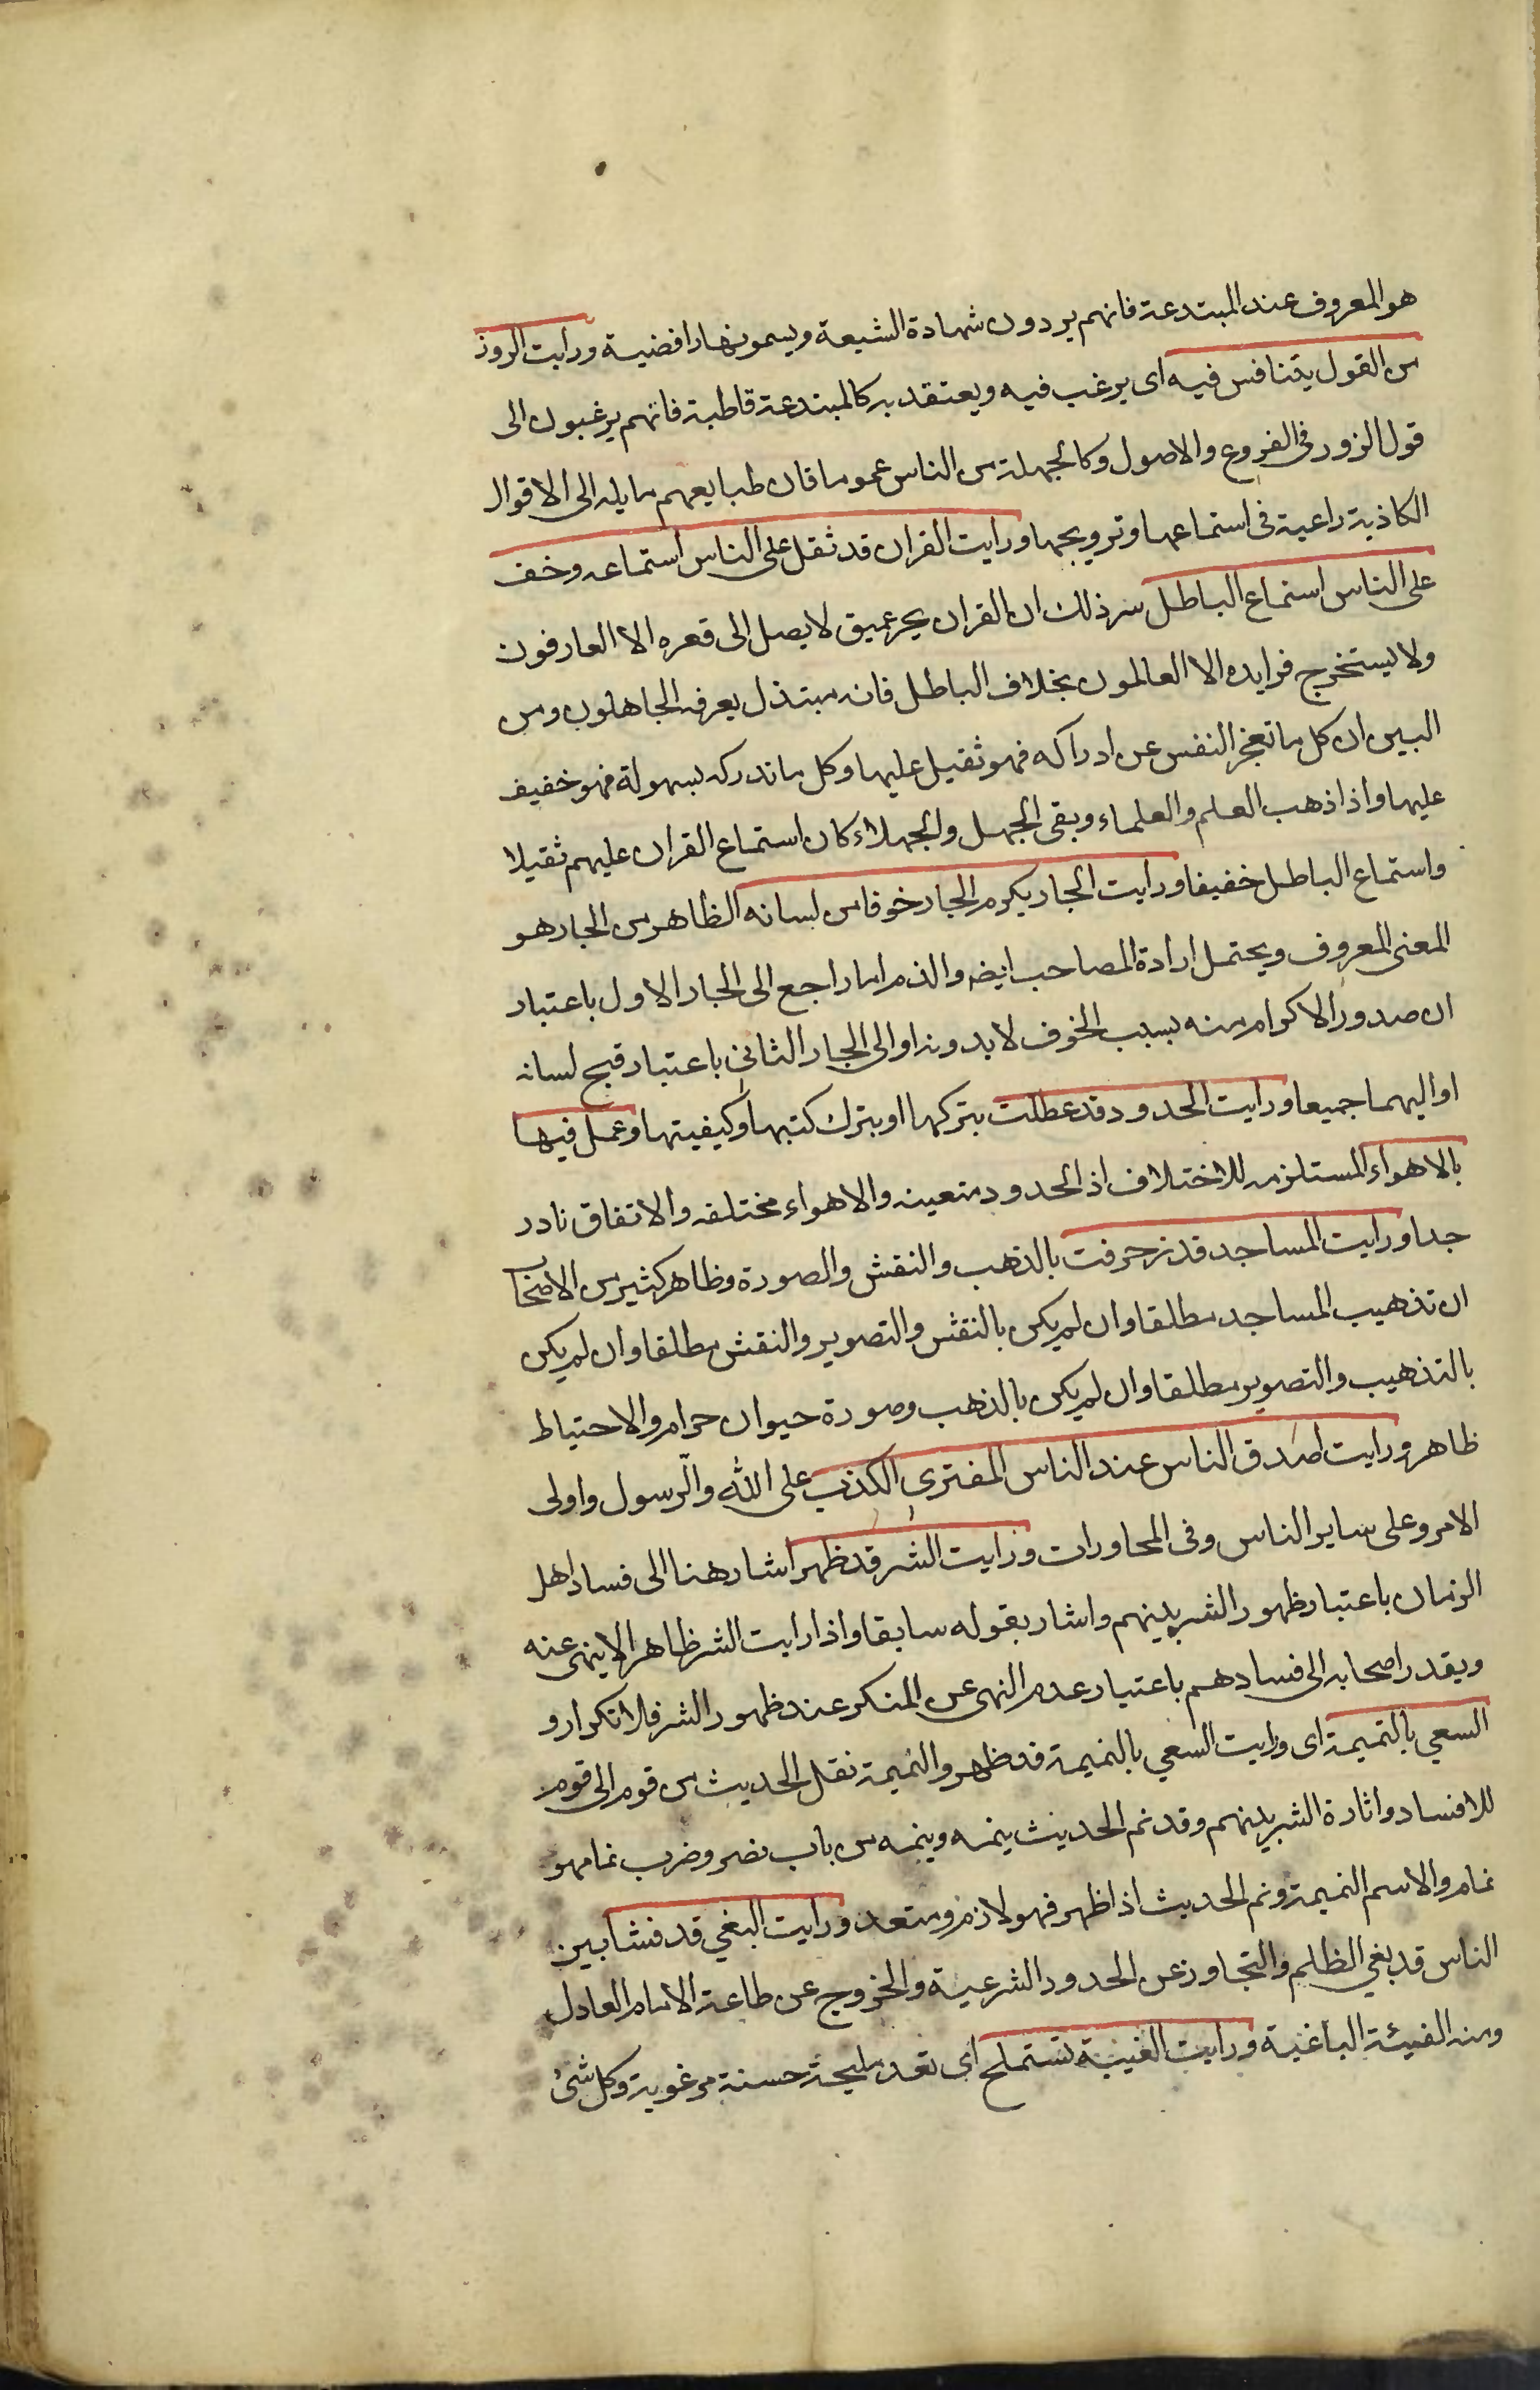 هو المعروف عند المبتدعة فانهم يردون شهادة الشيعة ويسمونها رافضية ورايت الزور
من القول يتنافس فيه اى يرغب فيه ويعتقد به كالمبتدعة قاطبة فانهم يرغبون الى
قول الزور فى الفروع والاصول وكالجهلة من الناس عموما فان طبايعهم مايله الى الاقوال
الكاذبة راعية فى استماعها وترويجها ورايت القران قد ثقل على الناس استماعه وخف
على الناس استماع الباطل سر ذلك ان القران بحر عميق لا يصل الى قعره الا العارفون
ولا يستخرج فرايده الا العالمون بخلاف الباطل فانه مبتذل يعرفه الجاهلون ومن
البين ان كل ما تعجز النفس عن ادراكه فهو ثقيل عليها وكل ما تدركه بسهولة فهو خفيف
عليها واذا ذهب العلم والعلماء وبقى الجهل والجهلاء كان استماع القران عليهم ثقيلا
واستماع الباطل خفيفا ورايت الجار يكرم الجار خوفا من لسانه الظاهر من الجار هو
المعنى المعروف ويحتمل ارادة المصاحب ايضه والذم اما راجع الى الجار الاول باعتبار
ان صدور الاكرام منه بسبب الخوف لا بدونه او الى الجار الثانى باعتبار قبح لسانه
او اليهما جميعا ورايت الحدود قد عطلت بتركها او بترك كتبها وكيفيتها وعمل فيها
بالاهواء المستلزمه للاختلاف اذ الحدود متعينه والاهواء مختلفه والاتفاق نادر
جدا ورايت المساجد قد زخرفت بالذهب والنقش والصورة وظاهر كثير من الاصحاب
ان تذهيب المساجد مطلقا وان لم يكن بالنقش والتصوير والنقش مطلقا وان لم يكن
بالتذهيب والتصوير مطلقا وان لم يكن بالذهب وصورة حيوان حرام والاحتياط
ظاهر ورايت اصدق الناس عند الناس المفترى الكذب على الله والرسول واولى
الامر وعلى ساير الناس وفى المحاورات ورايت الشر قد ظهر اشار هنا الى فساد اهل
الزمان باعتبار ظهور الشر بينهم واشار بقوله سابقا واذا رايت الشر ظاهرا لا ينهى عنه
ويقدر اصحابه الى فسادهم باعتبار عدم النهى عن المنكر عند ظهور الشر فلا تكرار و
السعي بالنميمة اى ورايت السعي بالنميمة قد ظهر والنميمة نقل الحديث من قوم الى قوم
للافساد واثارة الشر بينهم وقد نم الحديث ينمه وينمه من باب نصر وضرب نما فهو
نمام والاسم النميمة ونم الحديث اذا ظهر فهو لازم ومتعد ورايت البغي قد فشا بين
الناس قد بغي الظلم والتجاوز عن الحدود الشرعية والخروج عن طاعة الامام العادل
ومنه الفيئة الباغية ورايت الغيبة تستملح اى تعد مليحة حسنة مرغوبة وكل شئ